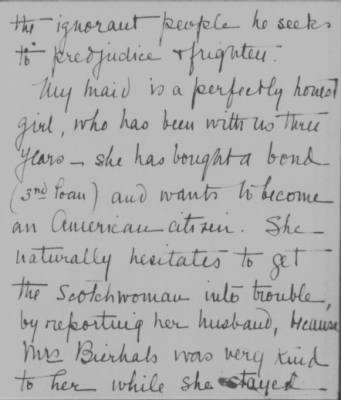 the ignorant people he seeks
to predjudice & frighten.
My maid is a perfectly honest
girl, who has been with us three
years – she has bought a bond
(3rd loan) and wants to become
an American citizen. She
naturally hesitates to get
the Scotchwoman into trouble,
by reporting her husband, because
Mrs Bierhals was very kind
to her while she stayed